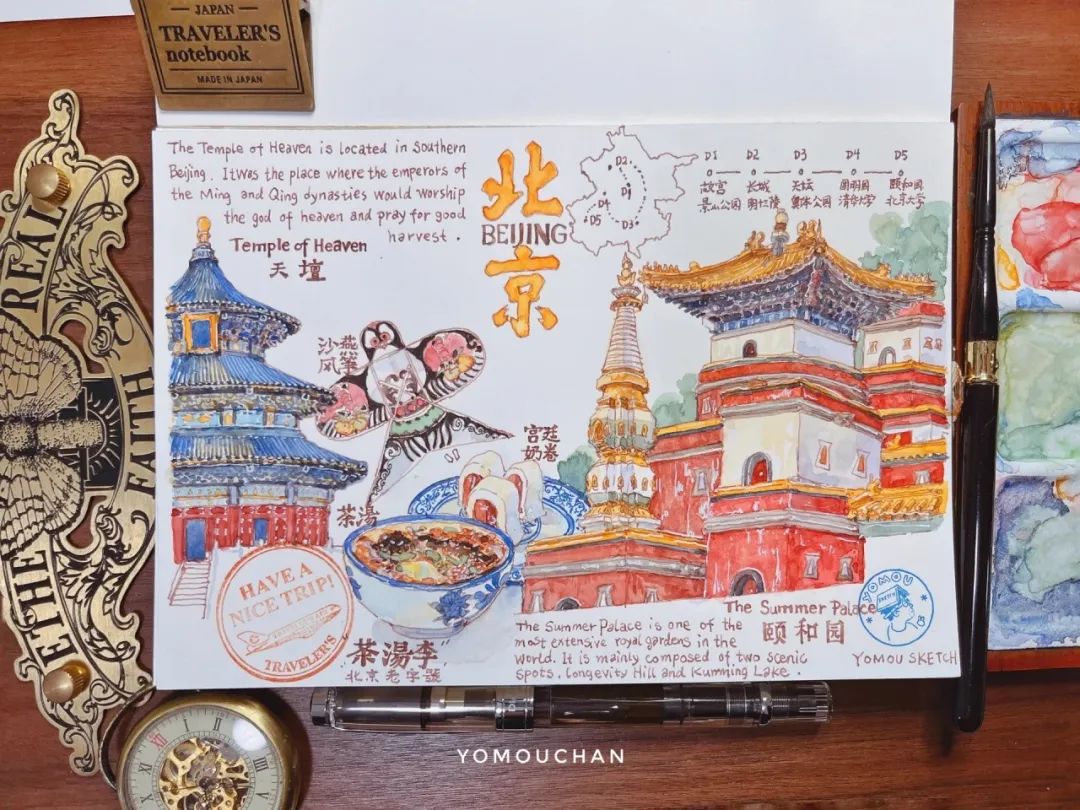 JAPAN
TRAVELER'S
notebook
MADE IN JAPAN
The Temple of Heaven is located in Southern
Beijing. It was the place where the emperors of
the Ming and Qing dynasties would worship
the god of heaven and pray for good
harvest.
Temple of Heaven
天壇
北
BEIJING
京
D2
D1
D4
D5
D3
D1 D2 D3 D4 D5
故宫 长城 天坛 圆明园 颐和园
景山公园 明十陵 奥体公园 清华大学 北京大学
沙燕
风筝
宫廷
奶卷
茶湯
HAVE A
NICE TRIP!
TRAVELER'S
茶湯李
北京老字號
The Summer Palace
颐和园
The Summer Palace is one of the
most extensive royal gardens in the
world. It is mainly composed of two scenic
spots, Longevity Hill and Kunming Lake.
YOMOU
YOMOU SKETCH
REAL
FAITH
ETHE
YOMOUCHAN